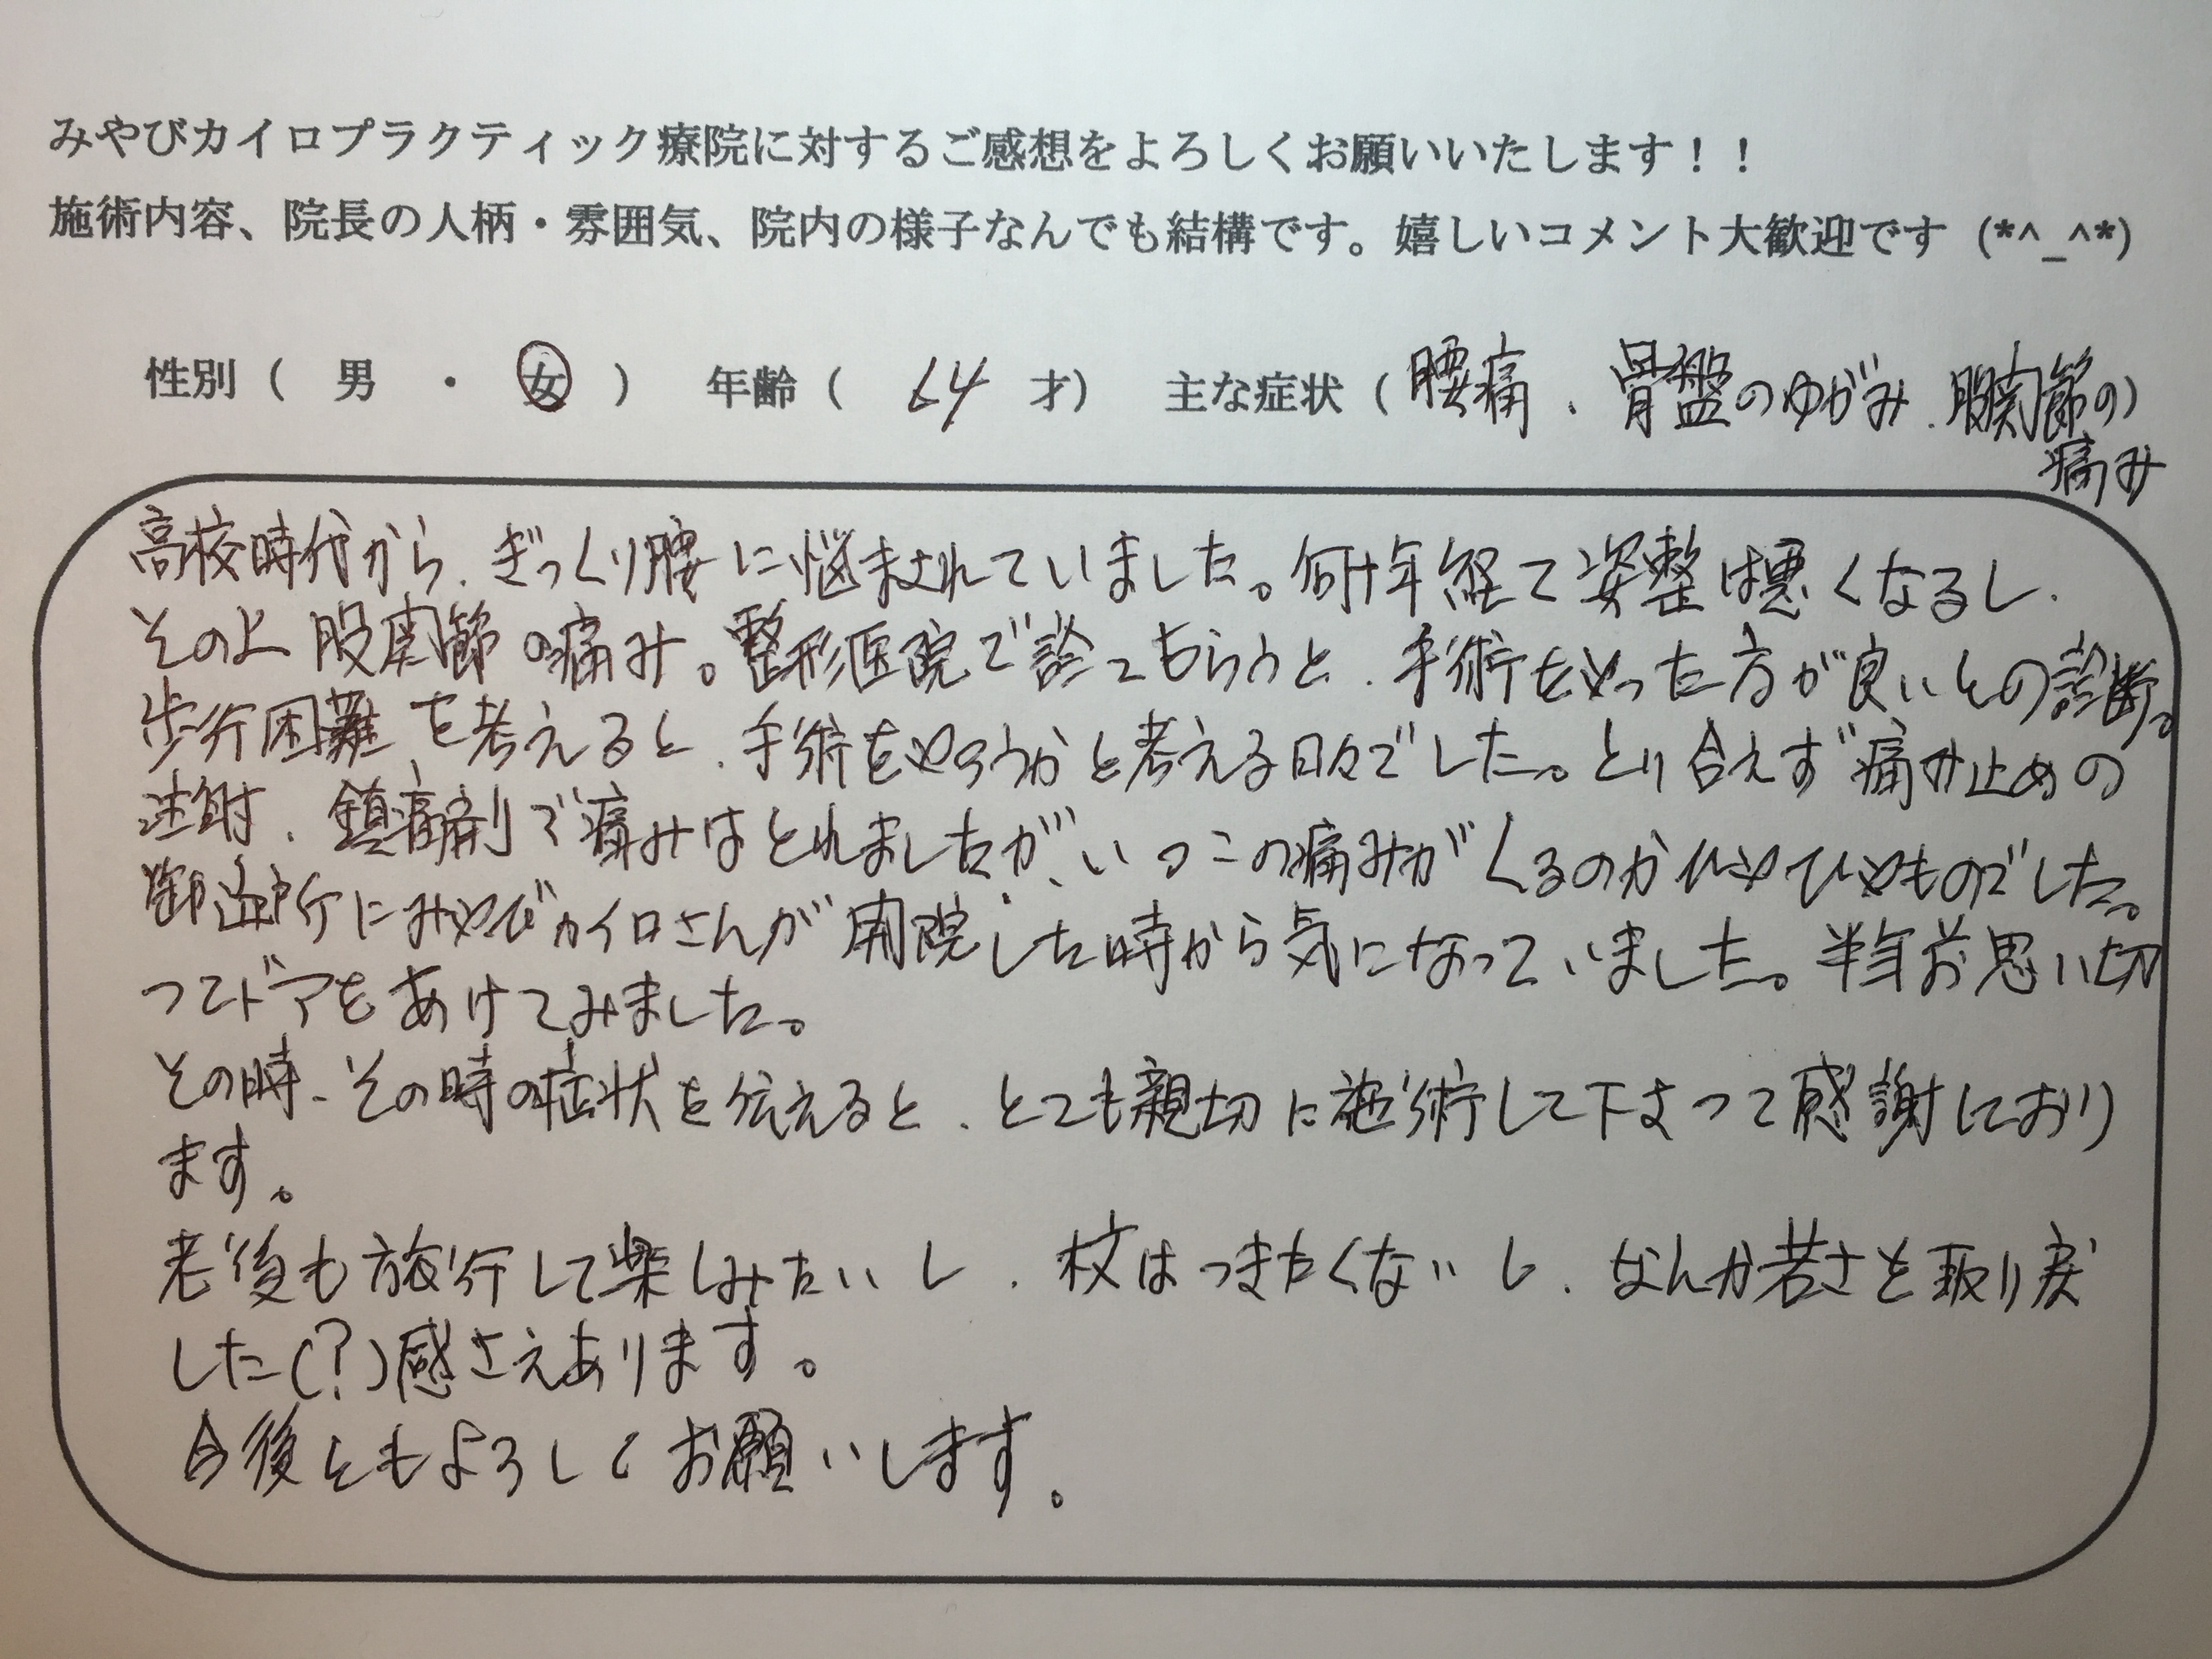 みやびカイロプラクティック療院に対するご感想をよろしくお願いいたします！！
施術内容、院長の人柄・雰囲気、院内の様子なんでも結構です。嬉しいコメント大歓迎です (*^_^*)
性別（　男　・　女　）　年齢（　64　才）　主な症状（腰痛、骨盤のゆがみ、股関節の）
痛み
高校時代から、ぎっくり腰に悩まされていました。何十年経て姿整は悪くなるし、
その上股関節の痛み。整形医院で診てもらうと、手術をやった方が良いとの診断。
歩行困難を考えると、手術をやろうかと考える日々でした。とり合えず痛み止めの
注射、鎮痛剤で痛みはとれましたが、いつこの痛みがくるのかひやひやものでした。
御近所にみやびカイロさんが開院した時から気になっていました。半年前思い切
ってドアをあけてみました。
その時、その時の症状を伝えると、とても親切に施術して下さって感謝しており
ます。
老後も旅行して楽しみたいし、杖はつきたくないし、なんか若さを取り戻
した(?)感さえあります。
今後ともよろしくお願いします。